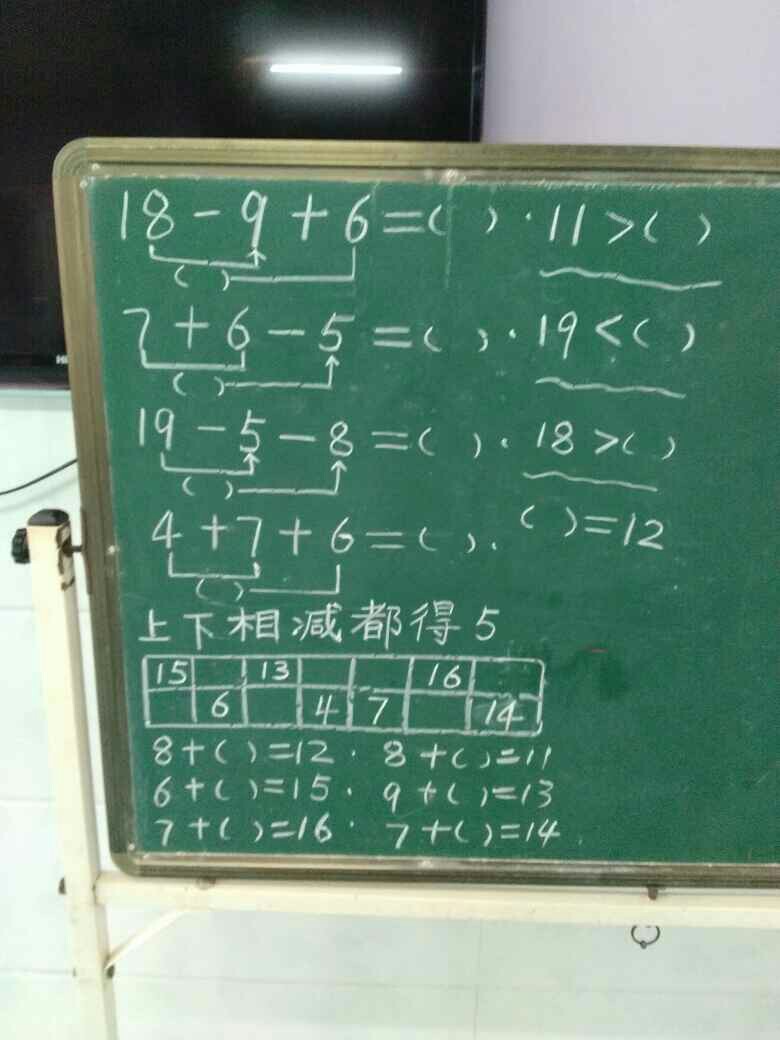 18-9+6=( )·11>( )
( )
7+6-5=( )·19<( )
( )
19-5-8=( )·18>( )
( )
4+7+6=( ).( )=12
( )
上下相减都得5
15 13 16
6 4 7 14
8+( )=12·8+( )=11
6+( )=15·9+( )=13
7+( )=16·7+( )=14